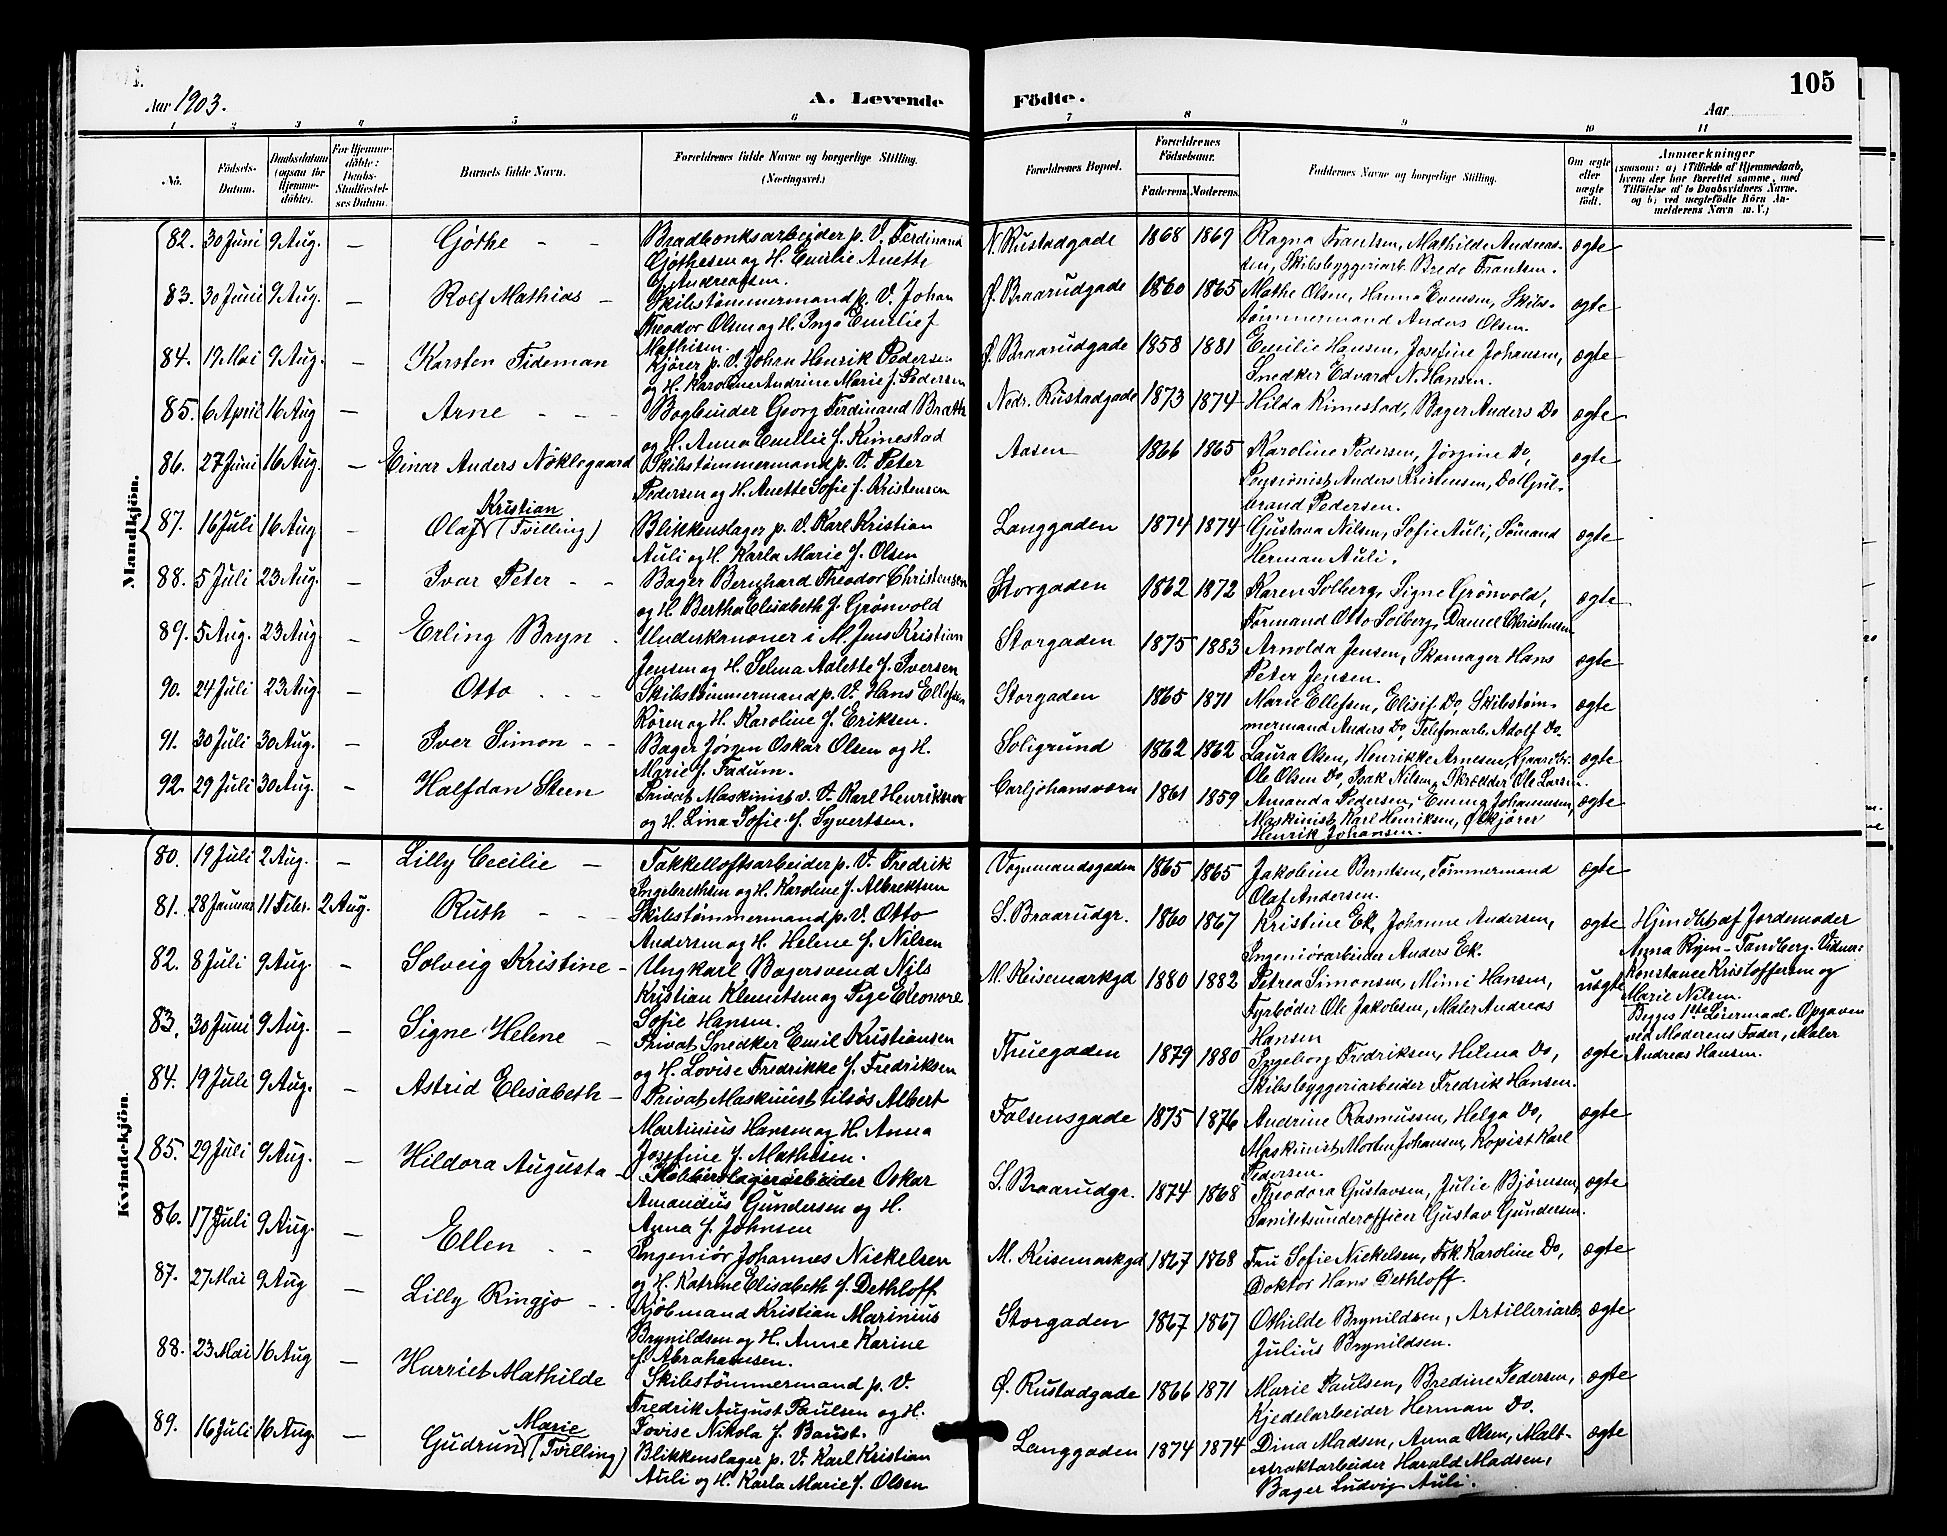 105
Aar 1903.
A. Levende Födte.
Aar
1 2 3 4 5 6 7 8 9 10 11
No.
Födsels-Datum.
Daabsdatum (ogsaa for Hjemme-döbte).
For Hjemme-döbte: Daabs-Stadfæstelses Datum.
Barnets fulde Navn.
Forældrenes fulde Navne og borgerlige Stilling. (Næringsvei.)
Forældrenes Bopæl.
Forældrenes Födselsaar.
Faderens. Moderens.
Faddernes Navne og borgerlige Stilling.
Om ægte eller uægte födt.
Anmærkninger
(saasom: a) i Tilfælde af Hjemmedaab, hvem der har forrettet samme, med Tilföielse af to Daabsvidners Navne, og b) ved uægtefödte Börn Anmelderens Navn m. V.)
Mandkjön.
82. 30 Juni 9 Aug. — Gjøthe - - Bradbenksarbeider p. V. Ferdinand N. Rustadgade 1868 1869 Ragna Frantsen, Mathilde Andreas- ægte
Gjøthesen og H. Emilie Anette sen, Skibsbyggeriarb. Bredo Frantsen.
f. Andreassen.
83. 30 Juni 9 Aug. — Rolf Mathias - Skibstømmermand p. V. Johan Ø. Braarudgade 1860 1865 Mathe Olsen, Hanna Evensen, Skibs- ægte
Theodor Olsen og H. Inga Emilie f. tømmermand Anders Olsen.
Mathisen.
84. 19 Mai 9 Aug. — Karsten Tideman Kjører p. V. Johan Henrik Pedersen Ø. Braarudgade 1858 1881 Emilie Hansen, Josefine Johansen, ægte
og H. Karoline Andrine Marie f. Pedersen Snedker Edvard N. Hansen.
85. 6 April 16 Aug — Arne - - - Bogbinder Georg Ferdinand Brath Nedr. Rustadgade 1873 1874 Hilda Kimestad, Bager Anders Do ægte
og H. Anna Emilie f. Kimestad
86. 27 Juni 16 Aug. — Einar Anders Nöklegaard Skibstømmermand p. V. Peter Aasen 1866 1865 Karoline Pedersen, Jørgine Do, ægte
Pedersen og H. Anette Sofie f. Kristensen Pensionist Anders Kristensen, Do Gul-
brand Pedersen.
87. 16 Juli 16 Aug — Olaf Kristian (Tvilling) Blikkenslager p. V. Karl Kristian Langgaden 1874 1874 Gustava Nilsen, Sofie Auli, Sømand ægte
Auli og H. Karla Marie f. Olsen Herman Auli.
88. 5 Juli 23 Aug. — Ivar Peter - - Bager Bernhard Theodor Christensen Storgaden 1862 1872 Karen Solberg, Signe Grønvold, ægte
og H. Bertha Elisabeth f. Grönvold Formand Otto Solberg, Daniel Christensen
89. 5 Aug. 23 Aug. — Erling Bryn - Underkanoner i M. Jens Kristian Storgaden 1875 1883 Arnolda Jensen, Skomager Hans ægte
Jensen og H. Selma Aalette f. Iversen Peter Jensen.
90. 24 Juli 23 Aug. — Otto - - - Skibstømmermand p. V. Hans Ellefsen Storgaden 1865 1871 Marie Ellefsen, Elisif Do, Skibstøm- ægte
Rören og H. Karoline f. Eriksen. mermand Anders Do, Telefonarb. Adolf Do.
91. 30 Juli 30 Aug. — Iver Simon - - Bager Jørgen Oskar Olsen og H. Soligrund 1862 1862 Laura Olsen, Henrikke Arnesen, Gaardbr. ægte
Marie f. Fadum. Ole Olsen Do, Isak Nilsen, Skrædder Ole Larsen.
92. 29 Juli 30 Aug. — Halfdan Steen Privat Maskinist v. V. Karl Henriksen Carljohansværn 1861 1859 Amanda Pedersen, Emma Johannesen, ægte
og H. Lina Sofie f. Syvertsen. Maskinist Karl Henriksen, Ølkjører
Henrik Johansen.
Kvindekjön.
80. 19 Juli 2 Aug. — Lilly Cecilie - Takkelloftsarbeider p. V. Fredrik Vognmandsgaden 1865 1865 Jakobine Berntsen, Tømmermand ægte
Ingebrethsen og H. Karoline f. Albrektsen Olaf Andersen.
81. 28 Januar 11 Febr. 2 Aug. Ruth - - - Skibstømmermand p. V. Otto S. Braarudgr. 1860 1867 Kristine Ek, Johanne Andersen, ægte Hjmdbt af Jordemoder
Andersen og H. Helene f. Nilsen Ingeniörarbeider Anders Ek. Anna Ryen-Tandberg. Vidner:
Konstance Kristoffersen og
Marie Nilsen.
82. 8 Juli 9 Aug. — Solveig Kristine - Ungkarl Bagersvend Nils M. Keisemarkgd 1880 1882 Petrea Simonsen, Mimi Hansen, uægte
Kristian Klemetsen og Pige Eleonore Fyrbøder Ole Jakobsen, Maler Andreas Begges 1ste Leiermaal. Opgaven
Sofie Hansen. Hansen ved Moderens Fader, Maler
Andreas Hansen.
83. 30 Juni 9 Aug. — Signe Helene - Privat Snedker Emil Kristiansen Thuegaden 1879 1880 Ingeborg Fredriksen, Helena Do, ægte
og H. Lovise Fredrikke f. Fredriksen Skibsbyggeriarbeider Fredrik Hansen.
84. 19 Juli 9 Aug. — Astrid Elisabeth - Privat Maskinist tilsøs Albert Falsensgade 1875 1876 Andrine Rasmussen, Helga Do, ægte
Martinius Hansen og H. Anna Maskinist Morten Johansen, Kopist Karl
Josefine f. Mathisen. Pedersen.
85. 29 Juli 9 Aug. — Hildora Augusta - Kobberslagerarbeider Oskar S. Braarudgr. 1874 1868 Theodora Gustavsen, Julie Bjørnsen, ægte
Amandus Gundersen og H. Sanitetsunderofficer Gustav Gundersen.
Anna f. Johnsen
86. 17 Juli 9 Aug. — Ellen - - Ingeniør Johannes Nickelsen M. Keisemarkgd 1867 1868 Fru Sofie Nickelsen, Frk. Karoline Do, ægte
og H. Katrine Elisabeth f. Dethloff Doktor Hans Dethloff.
87. 27 Mai 9 Aug — Lilly Ringjo - - Kjöbmand Kristian Marinius Storgaden 1867 1867 Othilde Brynildsen, Artilleriarb. ægte
Brynildsen og H. Anne Karine Julius Brynildsen.
f. Abrahamsen.
88. 23 Mai 16 Aug — Harriet Mathilde Skibstømmermand p. V. Ø. Rustadgade 1866 1871 Marie Paulsen, Bredine Pedersen, ægte
Fredrik August Paulsen og H. Kjedelarbeider Herman Do.
Lovise Nikola f. Baust.
89. 16 Juli 16 Aug. — Gudrun Marie (Tvilling) Blikkenslager p. V. Karl Kristian Langgaden 1874 1874 Dina Madsen, Anna Olsen, Malt- ægte
Auli og H. Karla Marie f. Olsen ekstraktarbeider Harald Madsen,
Bager Ludvig Auli.